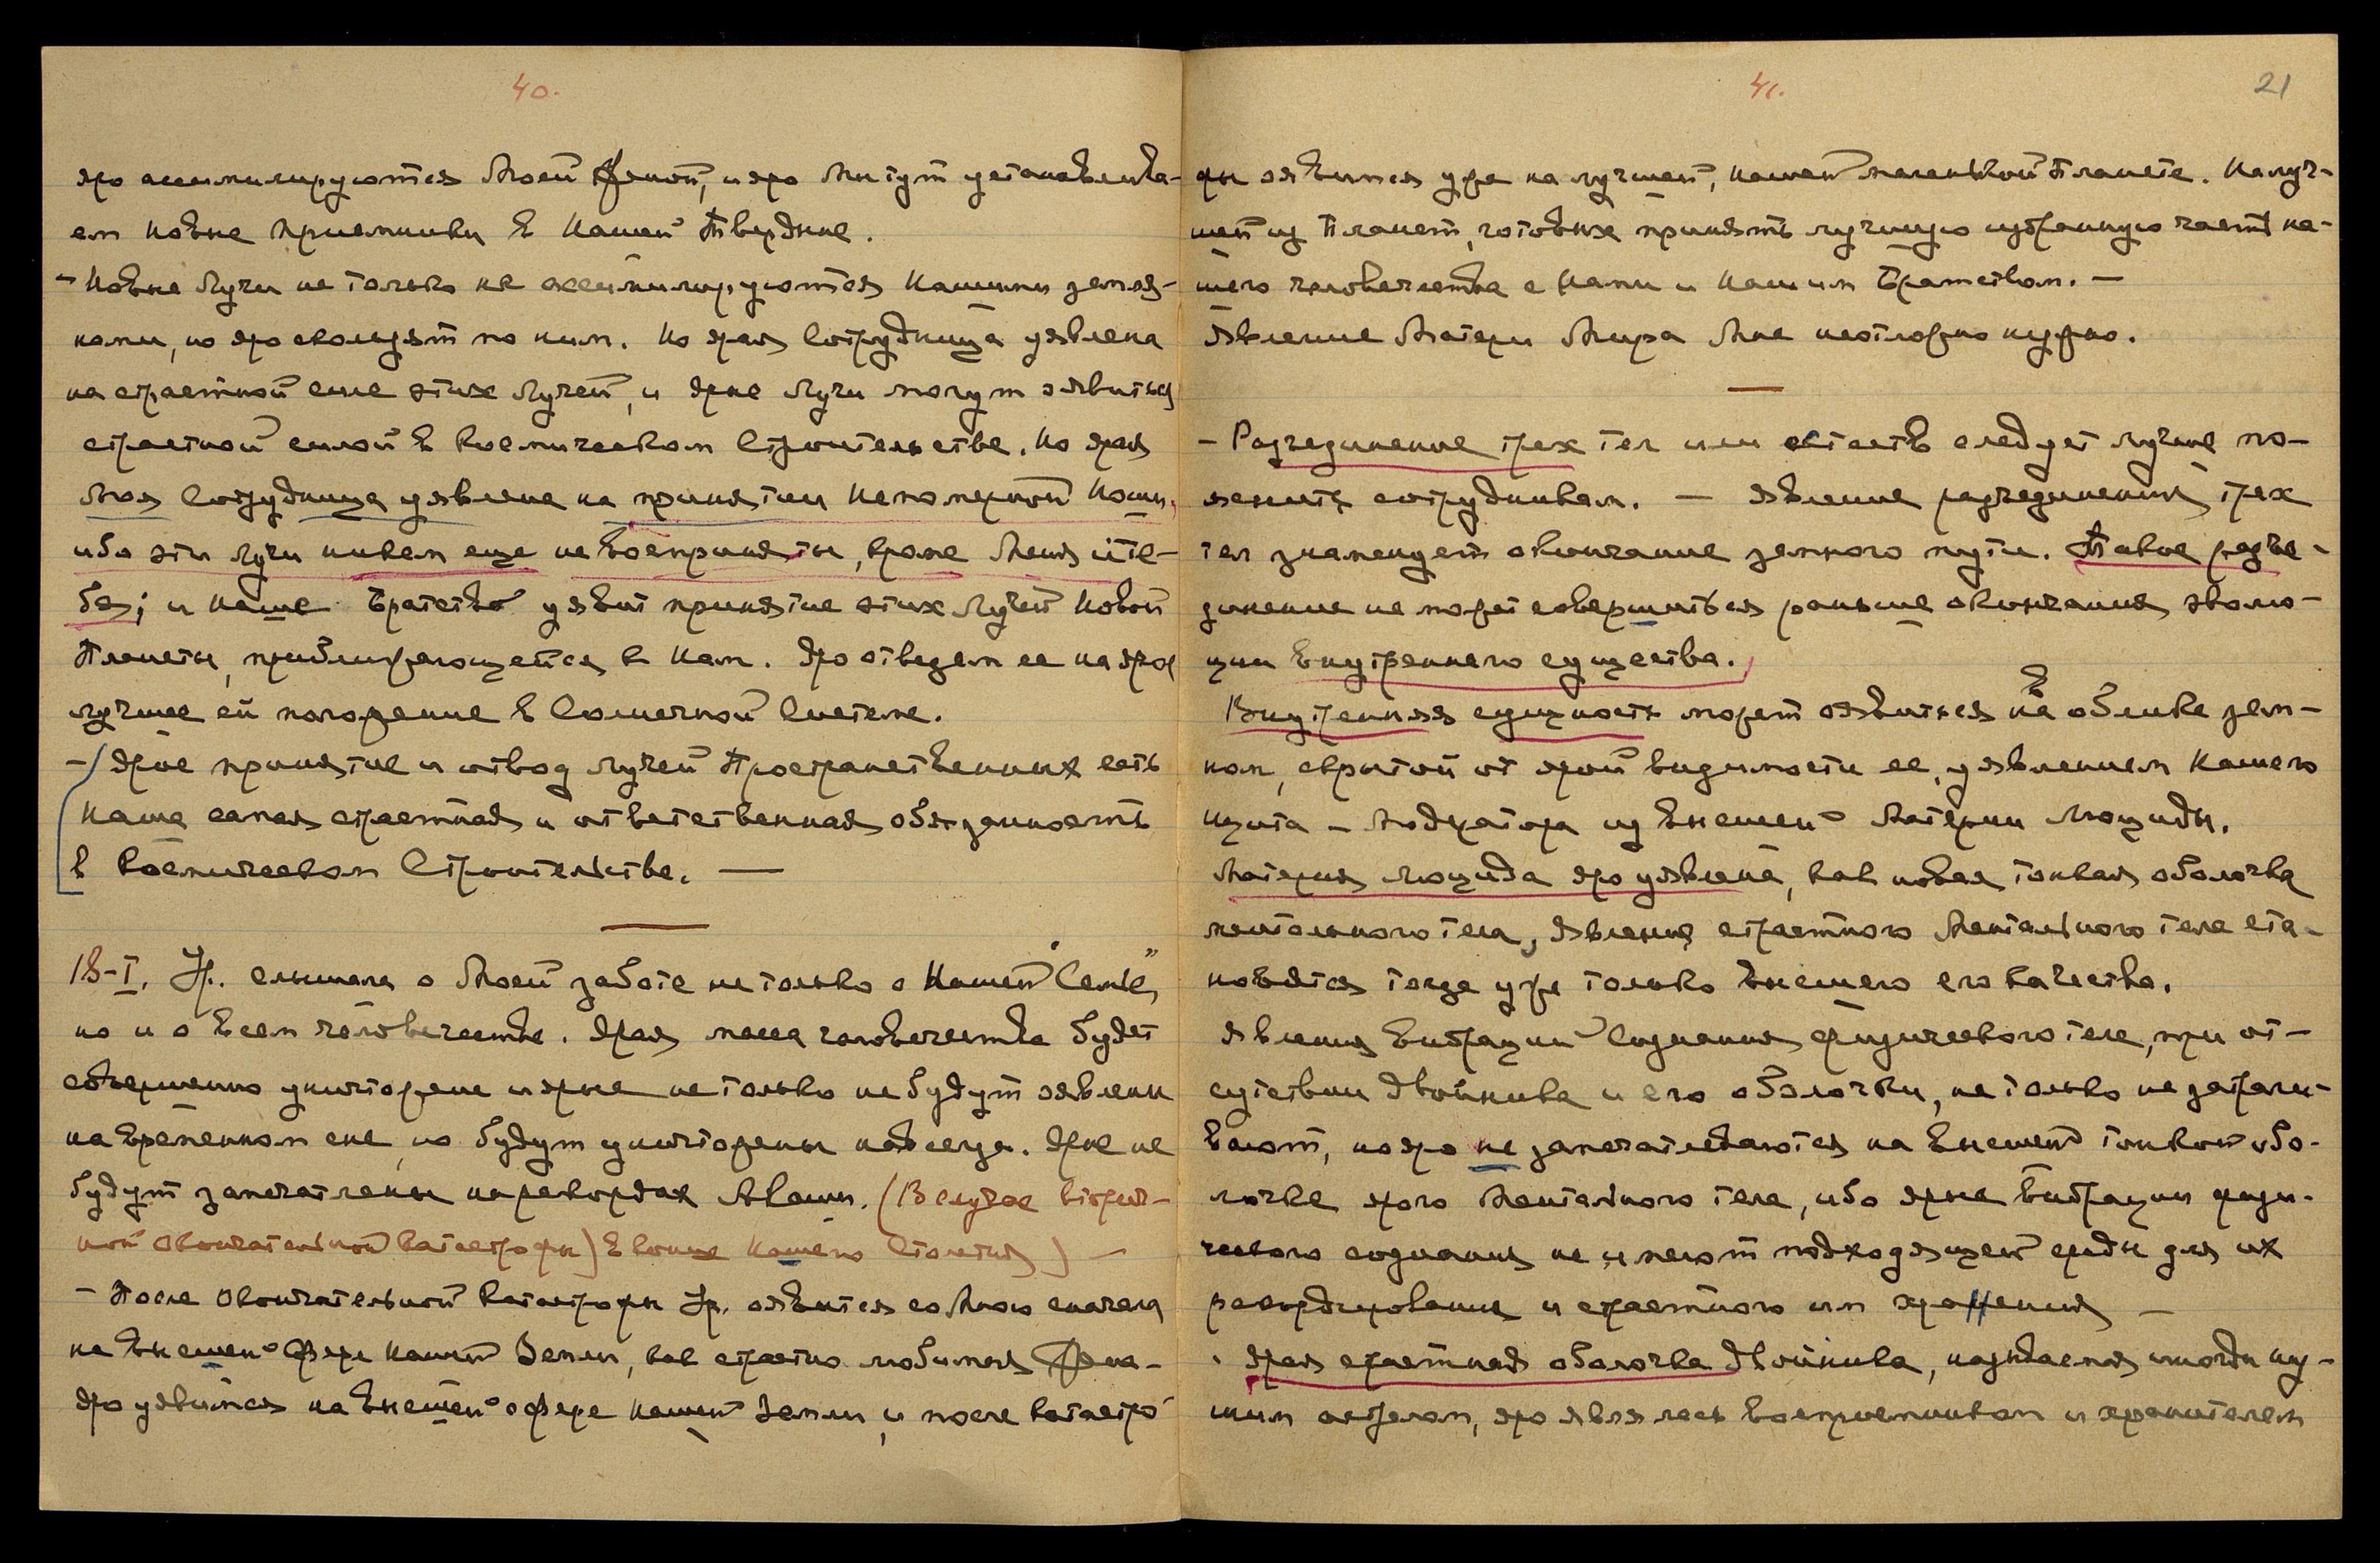 40.
яро ассимилируются Моей Женой, и яро Мы тут устанавлива-
ем новые приемники в Нашей Твердыне.
- Новые Лучи не только не ассимилируются Нашими земля-
нами, но яро скользят по ним. Но ярая Сотрудница уявлена
на страстной силе этих Лучей, и ярые Лучи могут оявиться
страстной силой в Космическом Строительстве. Но ярая
Моя Сотрудница уявлена на принятии Непомерной Ноши,
ибо эти Лучи никем еще не восприняты, кроме Меня и Те-
бя; и Наше Братство уявит принятие этих Лучей Новой
Планеты, приближающейся к Нам. Яро отведем ее на ярое
лучшее ей положение в Солнечной Системе.
- Ярое принятие и отвод Лучей Пространственных есть
Наша самая страстная и ответственная обязанность
в Космическом Строительстве. —
18-I. Ур. слышала о Моей заботе не только о Нашей "Семье",
но и о всем человечестве. Ярая масса человечества будет
совершенно уничтожена и ярые не только не будут оявлены
на временном сне, но будут уничтожены навсегда. Ярые не
будут запечатлены на рекордах Акаши. (В случае вторич-
ной окончательной катастрофы) в конце Нашего Столетия) —
- После окончательной катастрофы Ур. оявится со Мною сначала
на внешней сфере нашей Земли, как страстно любимая Жена -
яро уявимся на внешней сфере нашей Земли, и после катастро-
41.
21
фы оявимся уже на лучшей, нашей маленькой Планете. На луч-
шей из Планет, готовых принять лучшую избранную часть на-
шего человечества с Нами и Нашим Братством. —
Явление Матери Мира Мне неотложно нужно.
- Разъединение трех тел или естеств следует лучше по-
яснить сотрудникам. — Явление разъединения трех
тел знаменует окончание земного пути. Такое разъе-
динение не может совершиться раньше окончания эволю-
ции внутреннего существа.
Внутренняя сущность может оявиться на облике зем-
ном, скрытой от ярой видимости ее, уявлением Нашего
щита - Модулятора из внешней Материи Люциды.
Материя Люцида яро уявлена, как новая тонкая оболочка
ментального тела, явления страстного Ментального тела ста-
новятся тогда уже только внешнего его качества.
Явления вибраций сознания физического тела, при от-
сутствии двойника и его оболочки, не только не затраги-
вают, но яро не запечатлеваются на внешней тонкой обо-
лочке ярого Ментального тела, ибо ярые вибрации физи-
ческого сознания не имеют подходящей среды для их
рекордирования и страстного им хранения —
. Ярая страстная оболочка двойника, называемая иногда низ-
шим астралом, яро являлась восприемником и хранителем